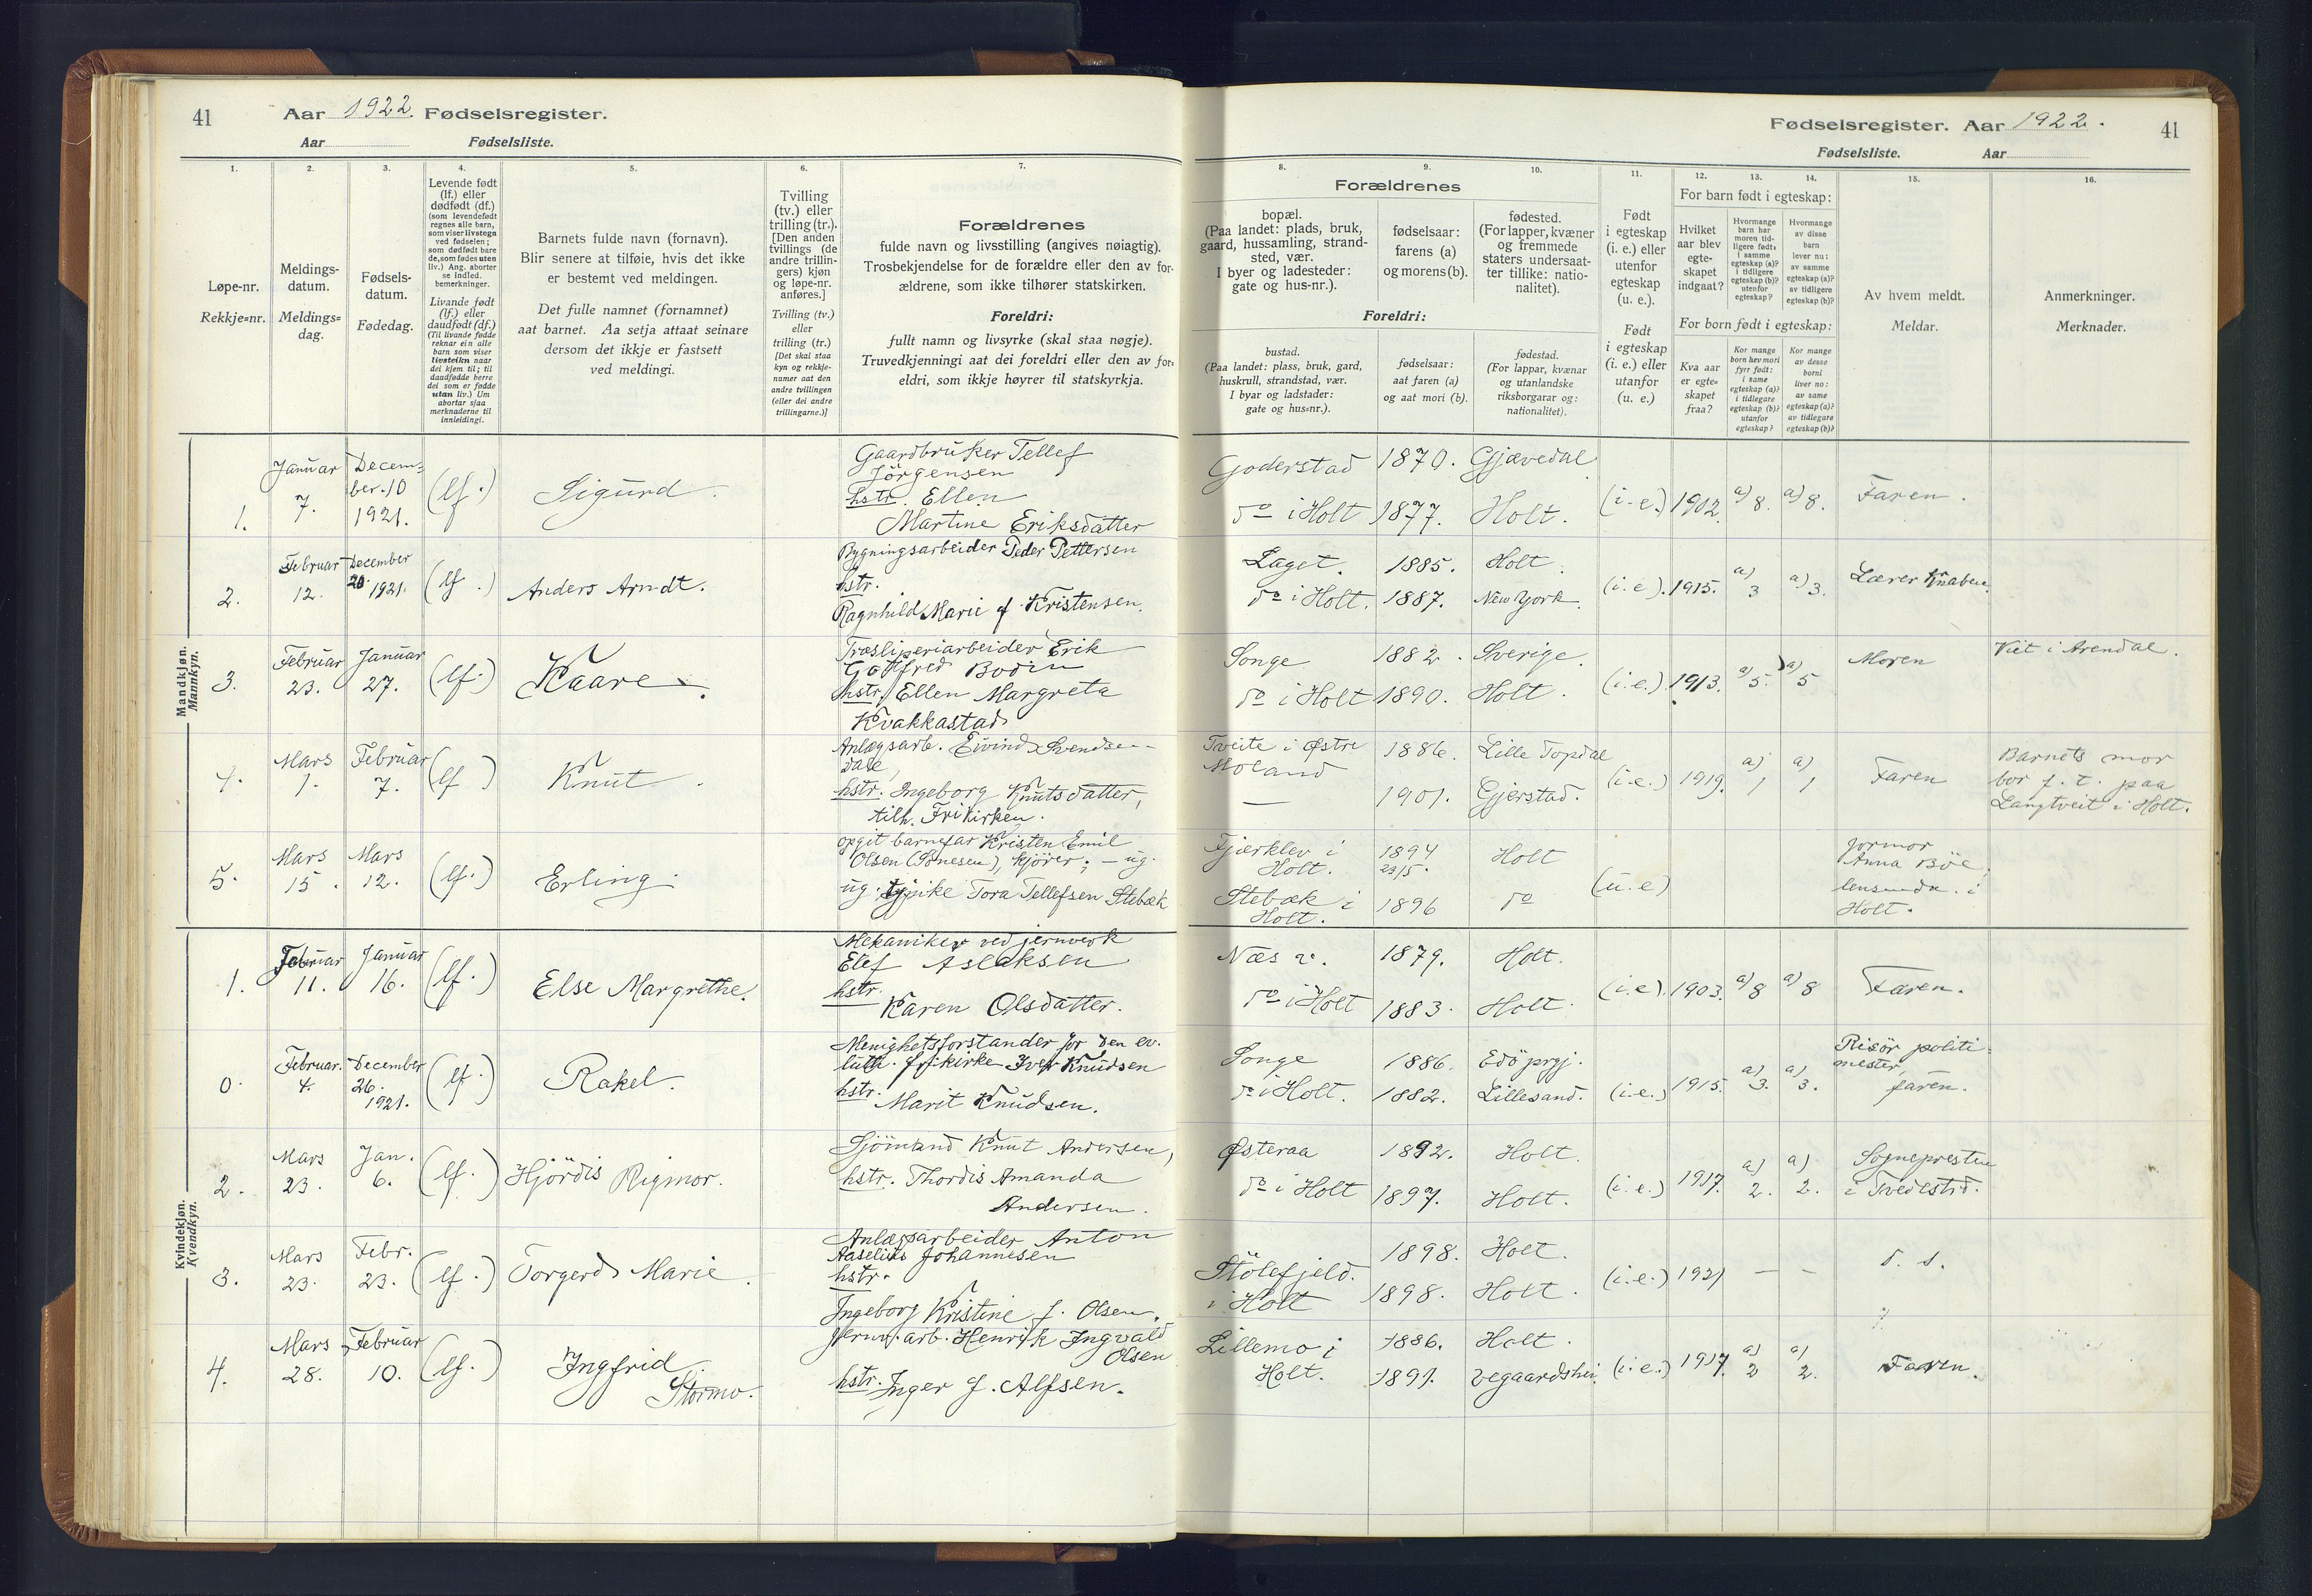 41
Aar 1922. Fødselsregister.
Aar
Fødselsliste.
1.
2.
3.
4.
5.
6.
7.
Løpe-nr.
Rekkje=nr.
Meldings-
datum.
Meldings=
dag.
Fødsels-
datum.
Fødedag.
Levende født
(lf.) eller
dødfødt (df.)
(som levendefødt
regnes alle barn,
som viser livstegn
ved fødselen;
som dødfødt bare
de, som fødes uten
liv.) Ang. aborter
se indled.
bemerkninger.
Livande født
(lf.) eller
daudfødt (df.)
(Til livande fødde
reknar ein alle
barn som viser
livsteikn naar
dei kjem til; til
daudfødde berre
dei som er fødde
utan liv.) Um
abortar sjaa
merknaderne til
innleidingi.
Barnets fulde navn (fornavn).
Blir senere at tilføie, hvis det ikke
er bestemt ved meldingen.
Det fulle namnet (fornamnet)
aat barnet. Aa setja attaat seinare
dersom det ikkje er fastsett
ved meldingi.
Tvilling
(tv.) eller
trilling (tr.).
[Den anden
tvillings (de
andre trillin-
gers) kjøn
og løpe-nr.
anføres.]
Tvilling (tv.)
eller
trilling (tr.)
[Det skal staa
kyn og rekkje-
numer aat den
andre tvillingen
(eller dei andre
trillingarne.)]
Forældrenes
fulde navn og livsstilling (angives nøiagtig).
Trosbekjendelse for de forældre eller den av for-
ældrene, som ikke tilhører statskirken.
Foreldri:
fullt namn og livsyrke (skal staa nøgje).
Truvedkjenningi aat dei foreldri eller den av for-
eldri, som ikkje høyrer til statskyrkja.
Mandkjøn.
Mannkyn.
1.
Januar
7.
Decem-
ber. 10
1921.
(lf.)
Sigurd.
Gaardbruker Tellef
Jörgensen
hstr. Ellen
Martine Eriksdatter
2.
Februar
12.
December
20. 1921.
(lf.)
Anders Arndt.
Bygningsarbeider Peder Pettersen
hstr.
Ragnhild Marie f. Kristensen.
3.
Februar
23.
Januar
27.
(lf.)
Kaare.
Træsliperiarbeider Erik
Gottfred Bodin
hstr. Ellen Margreta
Kvakkastad
4.
Mars
1.
Februar
7.
(lf)
Knut.
Anlægsarb. Eivind Svendsen-
dale,
hstr. Ingeborg Knutsdatter,
tilh. Frikirken.
5.
Mars
15.
Mars
12.
(lf.)
Erling.
opgit barnefar Kristen Emil
Olsen kjører; - ug.
ug. pike Tora Tellefsen Stebæk
Kvindekjøn.
Kvendkyn.
1.
Februar
11.
Januar
16.
(lf.)
Else Margrethe.
Mekaniker ved jernverk
Elef Aslaksen
hstr.
Karen Olsdatter.
0.
Februar.
4.
December
26.
1921.
(lf.)
Rakel.
Menighetsforstander for den ev.
luth. frikirke Iver Knudsen
hstr.
Marit Knudsen.
2.
Mars
23.
Jan.
6.
(lf.)
Hjördis Rigmor.
Sjömand Knut Andersen,
hstr. Thordis Amanda
Andersen.
3.
Mars
23.
Febr.
23.
(lf.)
Torgerd Marie.
Anlægsarbeider Anton
Aaselius Johannesen
hstr.
Ingeborg Kristine f. Olsen.
4.
Mars
28.
Februar
10.
(lf.)
Ingfrid
Stormo.
jernv. arb. Henrik Ingvald
Olsen
hstr. Inger f. Alfsen.
Fødselsregister. Aar 1922.
41
Fødselsliste.
Aar
8.
9.
10.
11.
12.
13.
14.
15.
16.
Forældrenes
bopæl.
(Paa landet: plads, bruk,
gaard, hussamling, strand-
sted, vær.
I byer og ladesteder:
gate og hus-nr.).
fødselsaar:
farens (a)
og morens (b).
fødested.
(For lapper, kvæner
og fremmede
staters undersaat-
ter tillike: natio-
nalitet).
Foreldri:
bustad.
(Paa landet: plass, bruk, gard,
huskrull, strandstad, vær.
I byar og ladstader:
gate og hus=nr.).
fødselsaar:
aat faren (a)
og aat mori (b).
fødestad.
(For lappar, kvænar
og utanlandske
riksborgarar og:
nationalitet).
Født
i egteskap
(i. e.) eller
utenfor
egteskap
(u. e.).
Født
i egteskap
(i. e.) eller
utanfor
(u. e.)
For barn født i egteskap:
Hvilket
aar blev
egte-
skapet
indgaat?
Hvormange
barn har
moren tid-
ligere født:
i samme
egteskap (a)?
i tidligere
egteskap (b)?
utenfor
egteskap?
Hvormange
av disse
barn
lever nu:
av samme
egteskap (a)?
av tidligere
egteskap (b)?
For born født i egteskap:
Kva aar
er egte=
skapet
fraa?
Kor mange
born hev mori
fyrr født:
i same
egteskap (a)?
i tidlegare
egteskap (b)?
utanfor
egteskap?
Kor mange
av desse
borni
liver no:
av same
egteskap (a)?
av tidlegare
egteskap (b)?
Av hvem meldt.
Meldar.
Anmerkninger.
Merknader.
Goderstad
do i Holt
1870.
1877.
Gjævedal
Holt.
(i.e.)
1902.
a) 8.
a) 8.
Faren.
Laget.
do i Holt.
1885.
1887.
Holt.
New York.
(i.e.)
1915.
a)
3
a) 3.
Lærer Knaben.
Songe
do i Holt
1882.
1890.
Sverige.
Holt.
(i.e.)
1913.
a) 5.
a) 5
Moren
Viet i Arendal.
Tveite i Østre
Moland
—
1886.
1901.
Lille Topdal
Gjerstad.
(i.e.)
1919.
a)
1
a)
1
Faren
Barnets mor
bor f. t. paa
Langtveit i Holt.
Fjerklev i
Holt.
Stebæk i
Holt.
1894
23/5.
1896
Holt
do
(u.e)
Jormor
Anna Böe,
i
Holt.
Næs v.
do i Holt
1879.
1883.
Holt.
Holt.
(i.e.)
1903.
a) 8
a) 8
Faren.
Songe
do i Holt.
1886.
1882.
Edö prgj.
Lillesand.
(i.e.)
1915.
a)
3.
a)
3.
Risör politi-
mester,
faren.
Østeraa
do i Holt
1892.
1897.
Holt.
Holt.
(i.e.)
1917.
a)
2.
a)
2.
Sognepresten
i Tvedestrd.
Stölefjeld.
i Holt
1898.
1898.
Holt.
Holt.
(i.e.)
1921
—
—
d. s.
Lillemo i
Holt.
1886.
1891.
Holt.
Vegaardshei.
(i.e.)
1917.
a)
2
a)
2.
Faren.